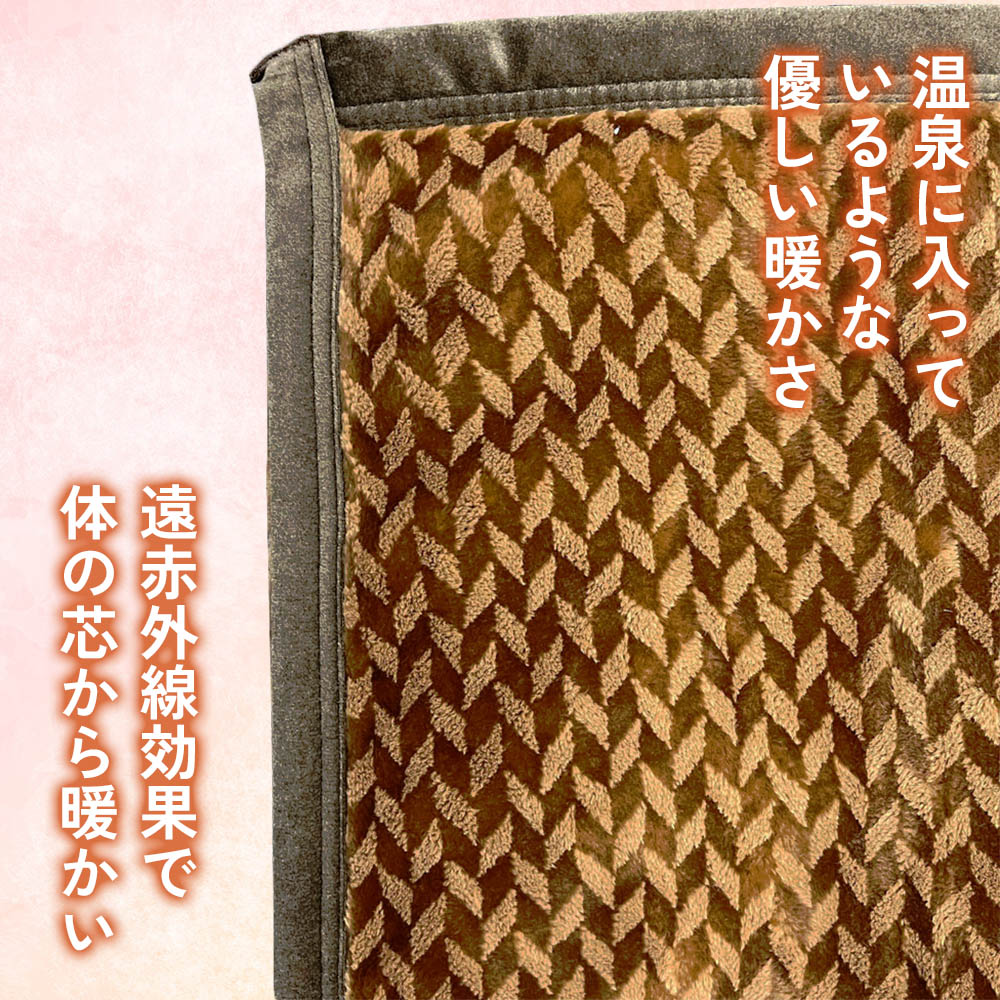 温泉に入って
いるような
優しい暖かさ
遠赤外線効果で
体の芯から暖かい